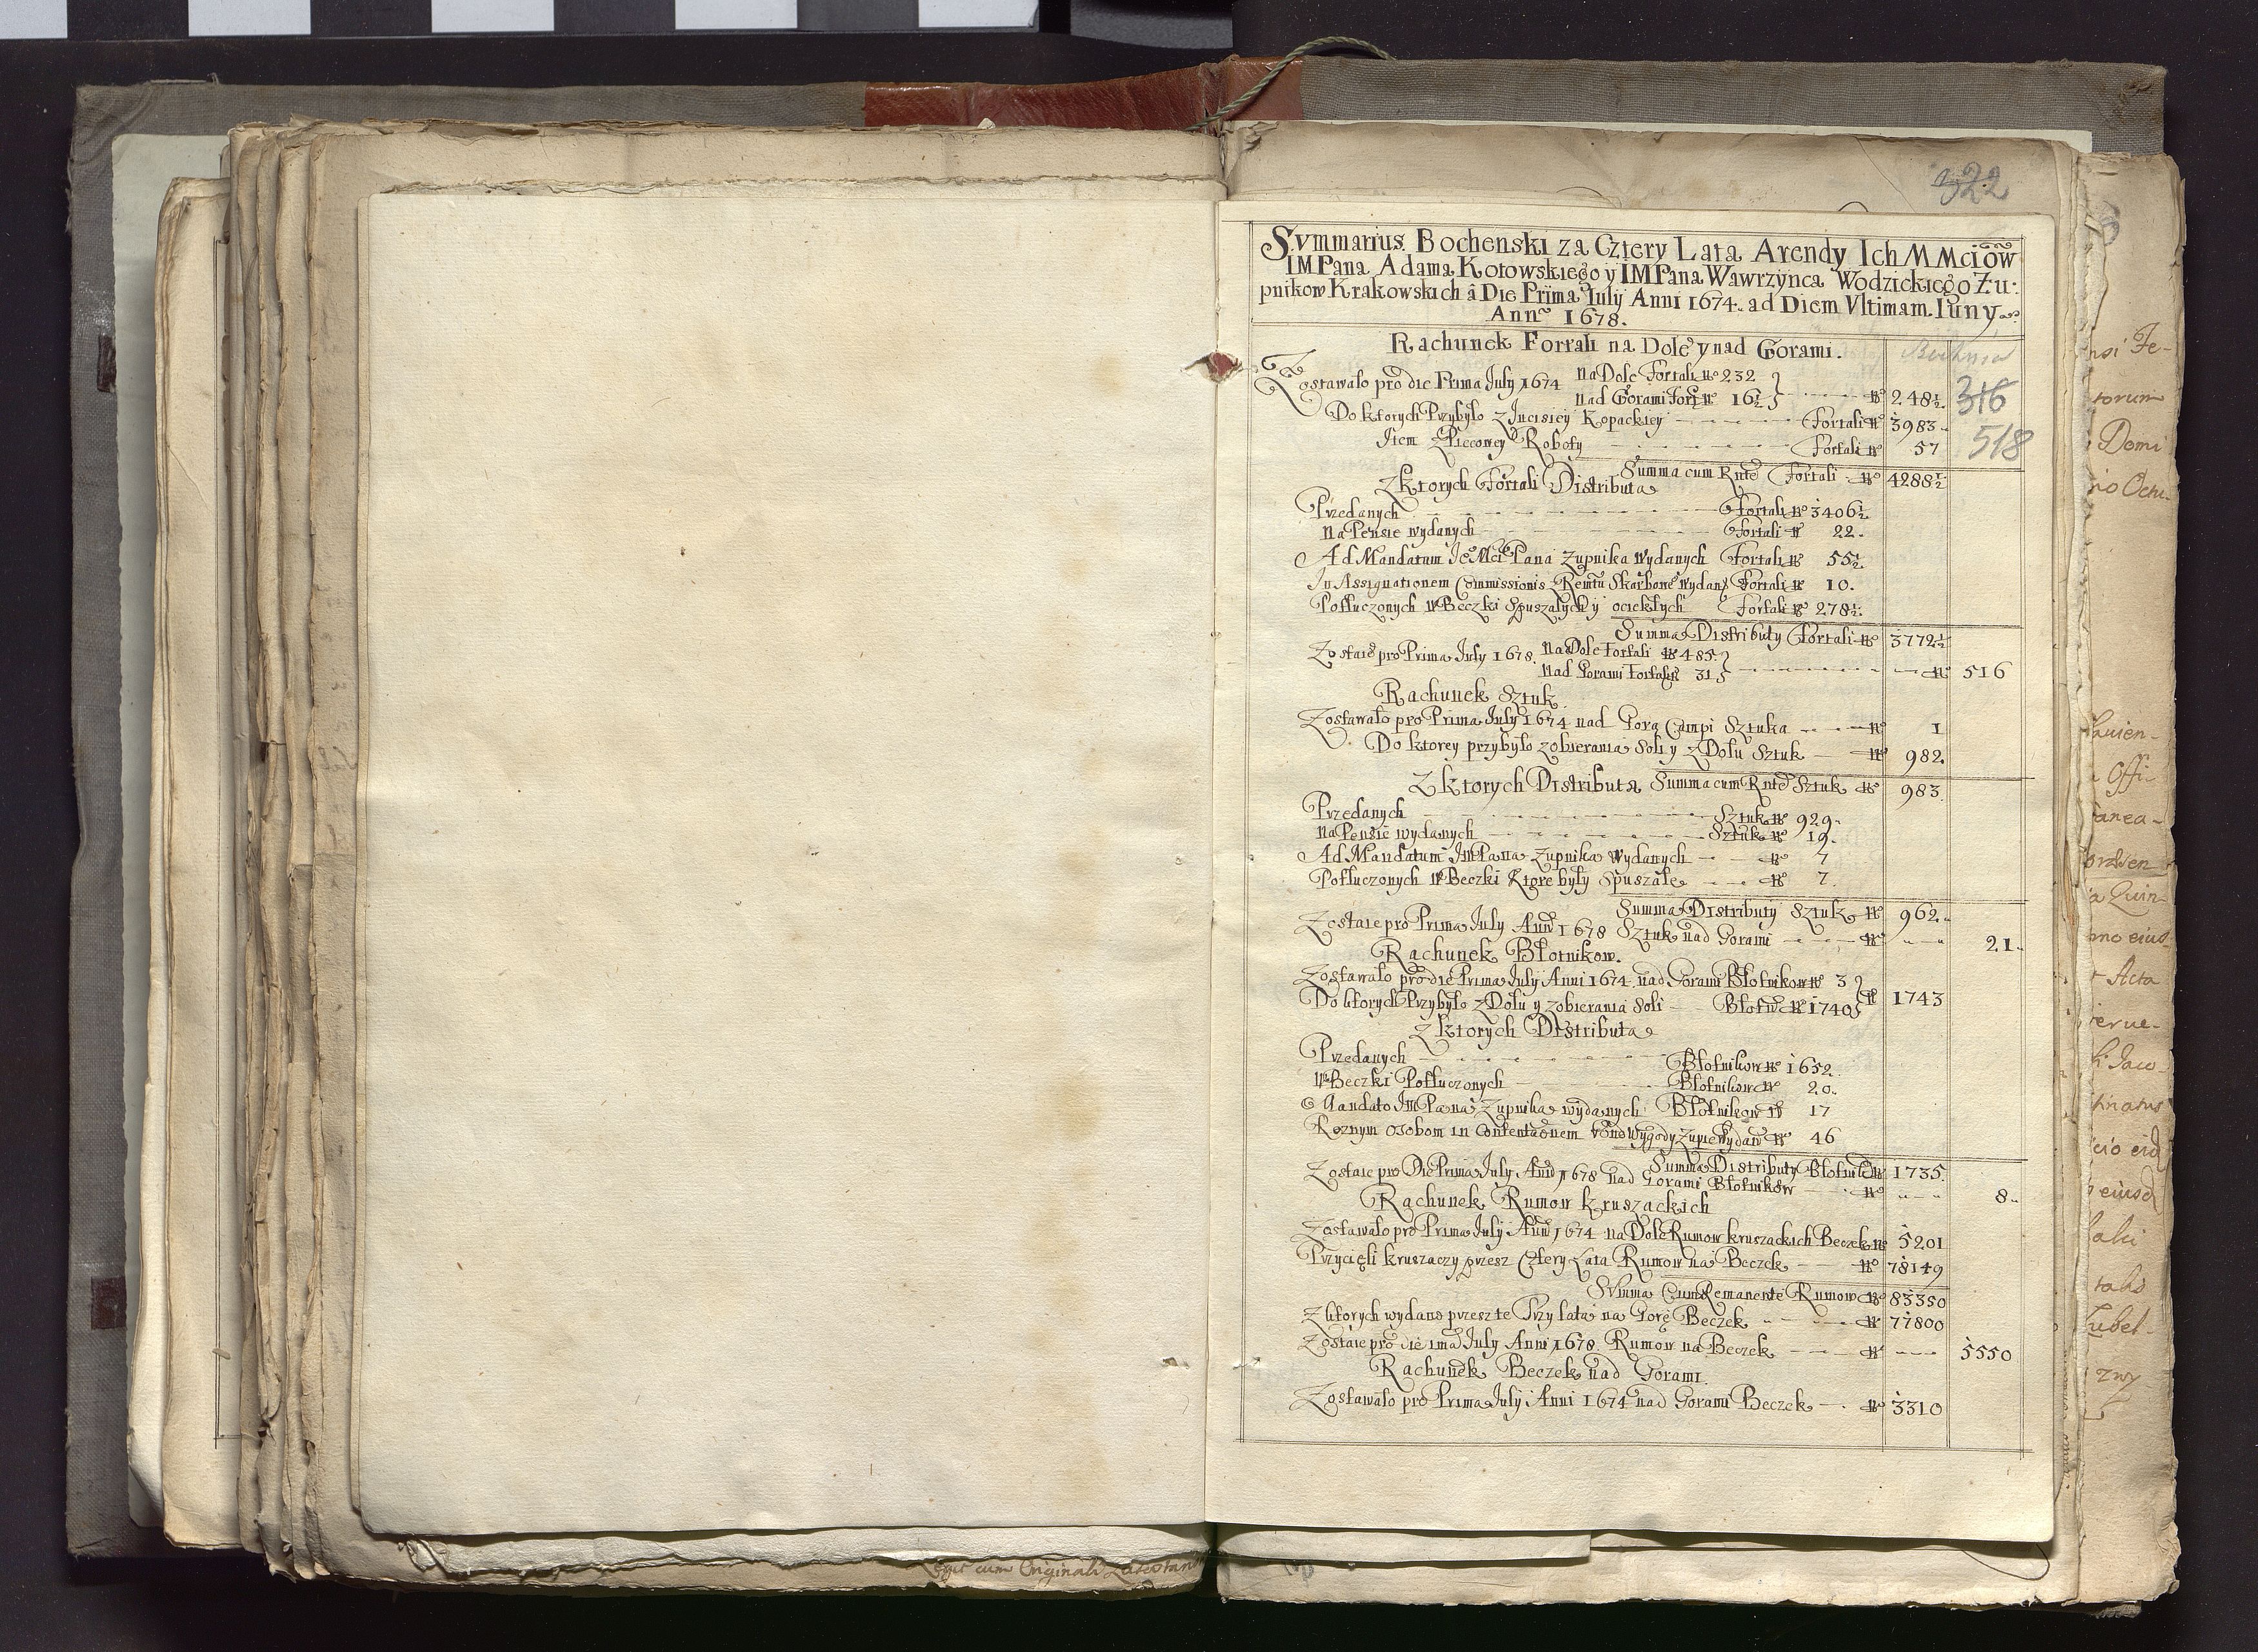 322
Svmmarius Bochenski za Cztery Lata Arendy Ich M Mciow
IMPana Adama Kotowskiego y IMPana Wawrzynca Wodzickiego Żu:
pnikow Krakowskich â Die Prima July Anni 1674. ad Diem Vltimam Iuny
Anno 1678.
Rachunek Fortali na Dole y nad Gorami. Bochnia
Zostawało pro die Prima July 1674 na Dole Fortali No 232
nad Gorami Fort No 16½ No 248½ 316
Do ktorych Przybyło z Incisiey Kopackiey Fortali No 3983
518
Item z Piecowey Roboty Fortali No 57
Summa cum Rnte Fortali No 4288½
Z ktorych Fortali Distributa
Przedanych Fortali No 3406½
Na Pensie wydanych Fortali No 22.
Ad Mandatum Je Mci Pana Zupnika wydanych Fortali No 55½
In Assignationem Commissionis Skarbowe wydan Fortali No 10.
Potłuczonych w Beczki Spuszałych y ociekłych Fortali No 278½
Summa Distributy Fortali No 3772½
Zostaie pro Prima July 1678. na Dole Fortali No 485
nad Gorami Fortali No 31 No 516
Rachunek Sztuk
Zostawało pro Prima July 1674 nad Gorą Campi Sztuka No 1
Do ktorey przybyło z obierania Soli y z Dołu Sztuk No 982.
Z ktorych Distributa Summa cum Rnte Sztuk No 983.
Przedanych Sztuk No 929.
na Pensie wydanych Sztuk No 19.
Ad Mandatum ImPana Zupnika wydanych No 7
Potłuczonych w Beczki Ktore były Spuszałe No 7.
Summa Distributy Sztuk No 962.
Zostaie pro Prima July Anni 1678 Sztuk nad Gorami No 21.
Rachunek Błotnikow.
Zostawało pro die Prima July Anni 1674. nad Gorami Błotnikow No 3
Do ktorych Przybyło z Dołu y z obierania Soli Błotni No 1740 No 1743
z ktorych Distributa
Przedanych Błotnikow No 1652.
w Beczki Potłuczonych Błotnikow No 20.
Mandato ImPana Zupnika wydanych Błotnikow No 17
Roznym osobom in wygody Zupie wydan No 46
Summa Distributy Błotnikow No 1735.
Zostaie pro Die Prima July Anni 1678 nad Gorami Błotnikow No 8.
Rachunek Rumow Kruszackich
Zostawało pro Prima July Anni 1674 na Dole Rumow kruszackich Beczek No 5201
Przycięli kruszaczy przesz Cztery Lata Rumow na Beczek No 78149
Svmma Cum Remanente Rumow No 83350
Z ktorych wydano przesz te Trzy lata na Gorę Beczek No 77800
Zostaie pro die 1ma July Anni 1678. Rumow na Beczek No 5550
Rachunek Beczek nad Gorami.
Zostawało pro Prima July Anni 1674 nad Gorami Beczek No 3310
cum Originali
torum
Domi
Offi
Acta
eius
zwy